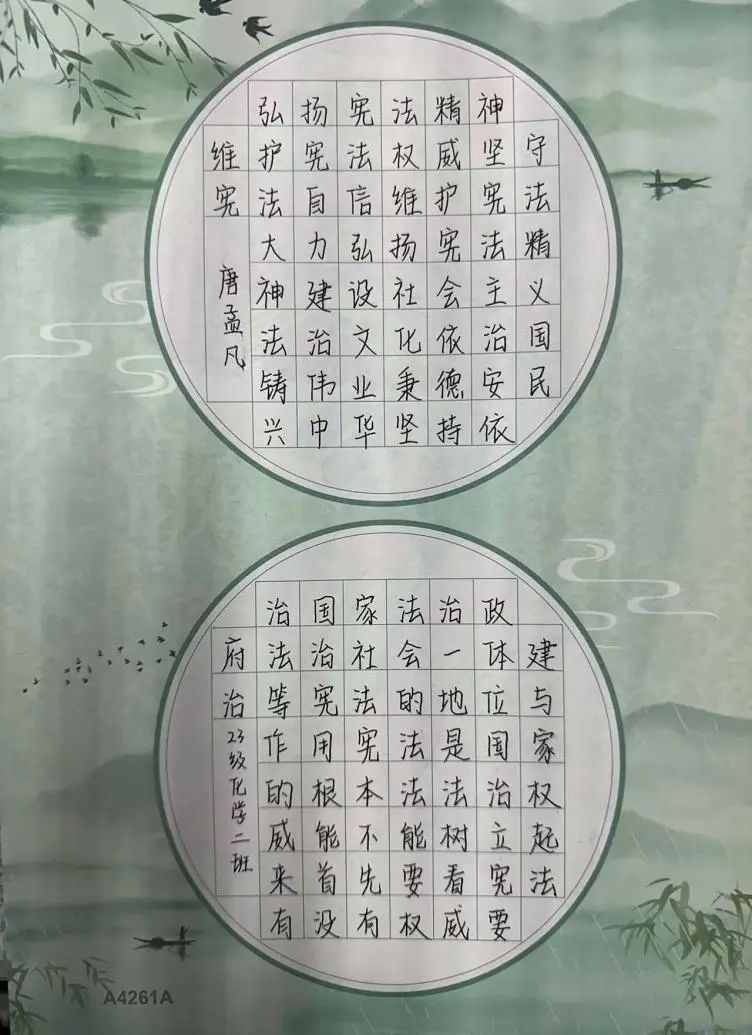 弘扬宪法精神
维护宪法权威坚守
宪法自信维护宪法
大力弘扬宪法精
神建设社会主义
法治文化依治国
铸伟业秉德安民
兴中华坚持依
唐孟凡
治国家法治政
府法治社会一体建
治等宪法的地位与
作用宪法是国家
的根本法法治权
威能不能树立起
来首先要看宪法
有没有权威要
23级化学二班
A4261A